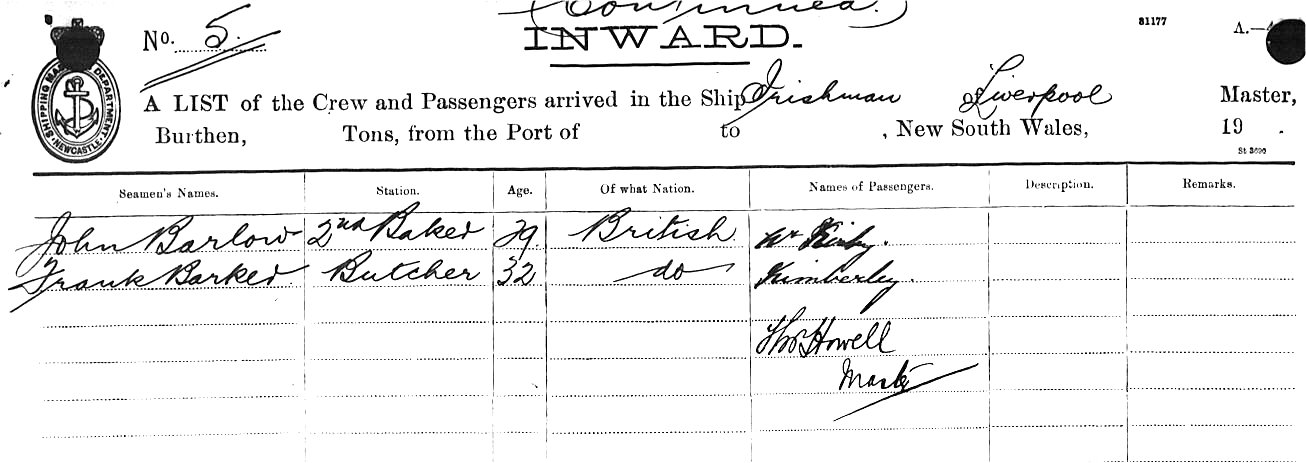 (Continued.)
81177
A.—
No. 5.
INWARD.
SHIPPING MASTER'S DEPARTMENT
NEWCASTLE
A LIST of the Crew and Passengers arrived in the Ship Irishman of Liverpool Master,
Burthen, Tons, from the Port of to , New South Wales, 19 .
St 3690
Seamen's Names. Station. Age. Of what Nation. Names of Passengers. Description. Remarks.
John Barlow 2nd Baker 29. British Mr Kirby.
Frank Barker Butcher 32 do Kimberley.
Thos Howell
Master